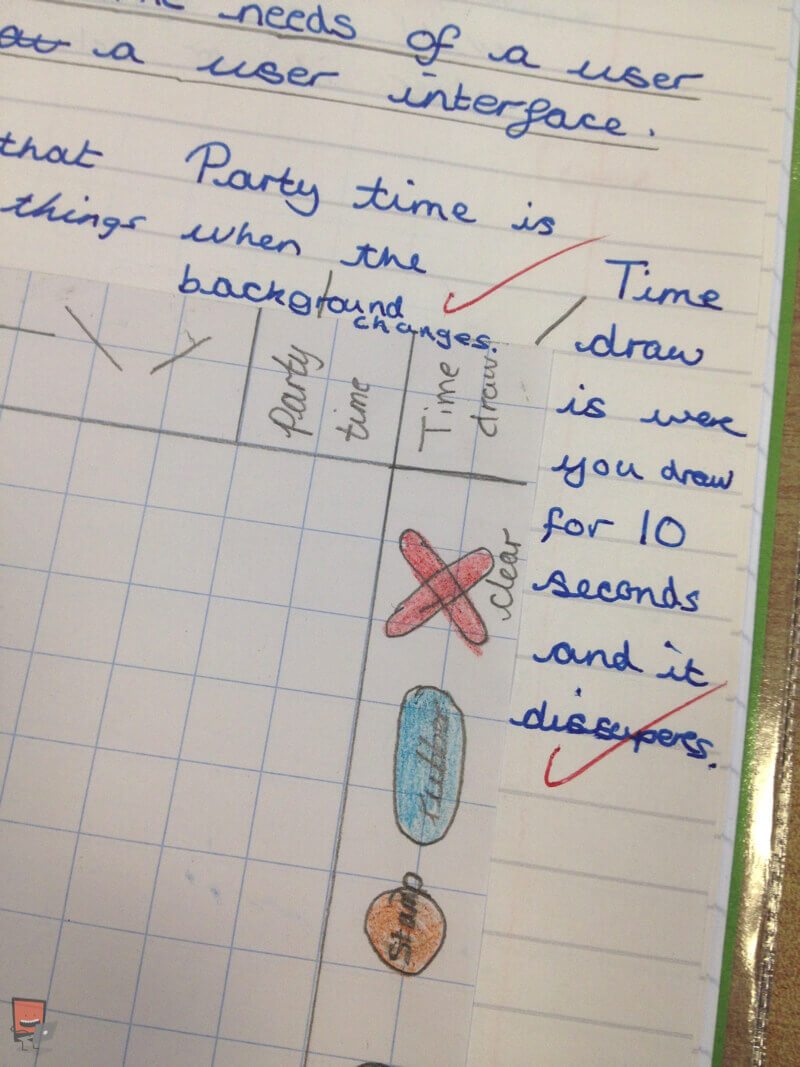 needs of a user
a user interface.
that Party time is
things when the
background
changes.
Time
draw
is were
you draw
for 10
seconds
and it
dissuperes.
Party
time
Time
draw
clear
Rubber
Stamp